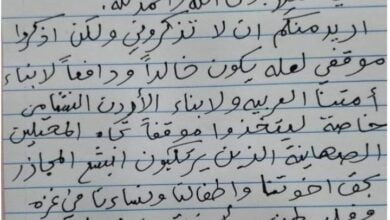 الله والحمد لله.
اريد منكم ان لا تذكروني ولكن اذكروا
موقفي لعله يكون خالداً ودافعاً لابناء
أمتنا العربية ولابناء الأردن النشامى
خاصة ليتخذوا موقفاً تجاه المحتلين
الصهاينة الذين يرتكبون ابشع المجازر
بحق اخوتنا واطفالنا ونساءنا في غزه